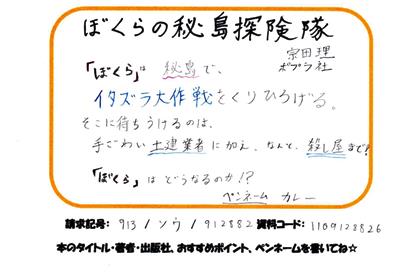 ぼくらの秘島探険隊
宗田理
ポプラ社
「ぼくら」は 秘島で、
イタズラ大作戦をくりひろげる。
そこに待ちうけるのは、
手ごわい土建業者に加え、なんと、殺し屋まで?
「ぼくら」はどうなるのか!?
ペンネーム カレー
請求記号: 913 / ソウ / 912882 資料コード: 1109128826
本のタイトル・著者・出版社、おすすめポイント、ペンネームを書いてね☆